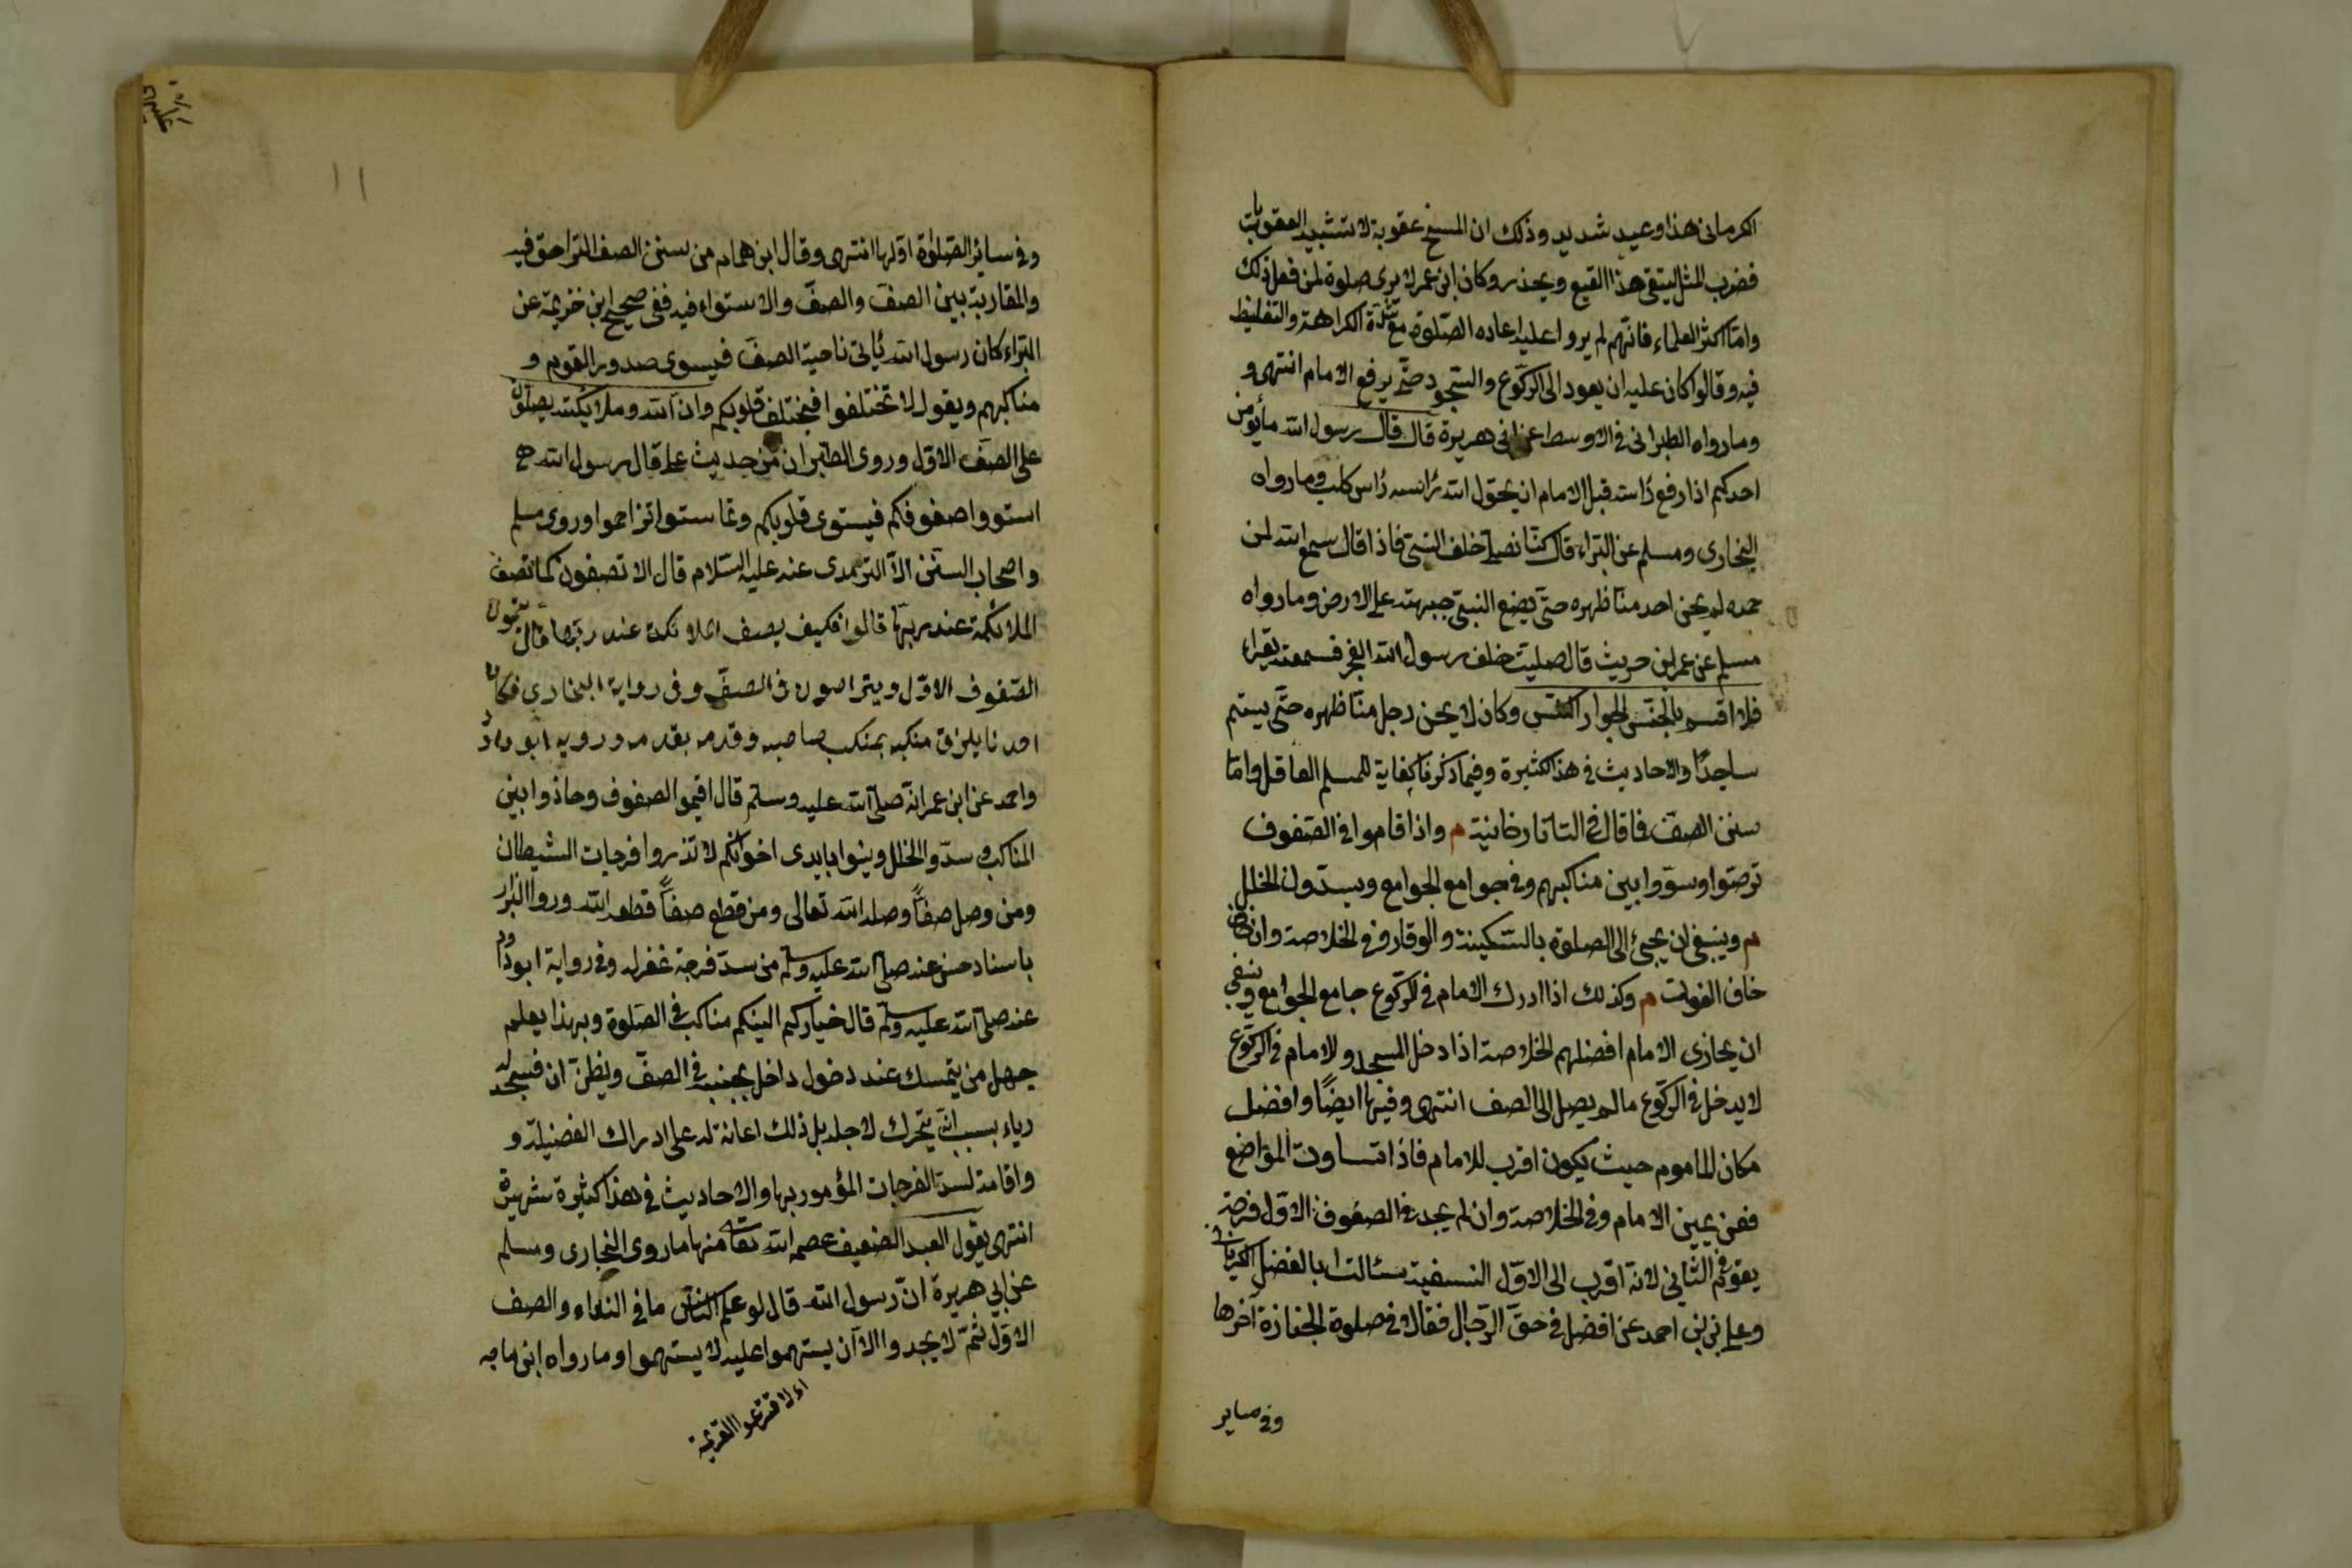 الكرمانى هذا وعيد شديد وذلك ان المسخ عقوبة لا تشبه العقوبات
فضرب المثل ليتقى هذا القبيع ويحذر وكان ابن عمر لا يرى صلوة لمن فعل ذلك
وامّا اكثر العلماء فانّهم لم يروا عليه اعاده الصّلوة مع شدّة الكراهة والتغليظ
فيه وقالوا كان عليه ان يعود الى الركّوع والسّجود حتّى يرفع الامام انتهى و
ومارواه الطبرانى فى الاوسط عن ابى هريرة قال قال رسول الله مايؤمن
احدكم اذا رفع رأسه قبل الامام ان يحوّل الله رأسه رأس كلب ومارواه
البخارى ومسلم عن البراء قال كنّا نصلى خلف النبىّ فاذا قال سمع الله لمن
حمده لم يحن احد منّا ظهره حتّى يضع النبىّ جبهته على الارض ومارواه
مسلم عن عمر بن حريث قال صليت خلف رسول الله الفجر فسمعته يقراء
فلا اقسم بالخنّس الجوار الكنّس وكان لا يحن رجل منّا ظهره حتّى يستم
ساجدًا والاحاديث فى هذا كثيرة وفيما ذكرنا كفاية للمسلم العاقل وامّا
سنن الصفّ فاقال فى التاتارخانية م واذا قاموا فى الصّفوف
ترصّوا وسوّوا بين مناكبهم وفى جوامع الجوامع ويسدّون الخلل
م وينبغى ان يجئ الى الصلوة بالسّكينة والوقار وفى الخلاصة وان كان
خاف الفوات م وكذلك اذا ادرك الامام فى الركّوع جامع الجوامع وينبغى
ان يحاذى الامام افضلهم الخلاصة اذا دخل المسجد والامام فى الركّوع
لا يدخل فى الركّوع مالم يصل الى الصف انتهى وفيها ايضًا وافضل
مكان الماموم حيث يكون اقرب للامام فاذا تساوت المواضع
فعن يمين الامام وفى الخلاصة وان لم يجد فى الصفوف الاوّل فرجة
يقوم فى الثّانى لانّه اقرب الى الاوّل النسفية سئالت ابا الفضل الكرمانى
وعلى بن احمد عن افضل فى حقّ الرّجال فقالا فى صلوة الجنازة آخرها
وفى ساير
١١
وفى ساير الصّلوٰة اوّلها انتهى وقال ابن همام من سنن الصف التراص فيه
والمقاربة بين الصفّ والصفّ والاستواء فيه ففى صحيح ابن خزيمة عن
البراء كان رسول الله يأتى ناحية الصفّ فيسوى صدور القوم و
مناكبهم ويقول لا تختلفوا فيختلف قلوبكم وانّ الله وملائكته يصلّون
على الصفّ الاوّل وروى الطبرانى من حديث على قال رسول الله ص
استووا صفوفكم فيستوى قلوبكم وتماستوا تزاحموا وروى مسلم
واصحاب السنن الاّ الترمدى عنه عليه السّلام قال الا تصفون كما تصف
الملائكة عند ربّها قالوا فكيف يصف الملائكة عند ربّها قال يتمون
الصّفوف الاوّل ويتراصون فى الصفّ وفى رواية البخارى فكان
احدنا يلزق منكبه بمنكب صاحبه وقدمه بقدمه ورويه ابو داود
واحمد عن ابن عمر انّه صلى الله عليه وسلّم قال اقيموا الصفوف وحاذوا بين
المناكب وسدّوا الخلل ولينوا بايدى اخوانكم لا تذروا فرجات الشيطان
ومن وصل صفاًّ وصله الله تعالى ومن قطع صفاًّ قطعه الله وروا البزار
باسناد حسن عنه صلى الله عليه وسلم من سدّ فرجة غفر له وفى رواية ابو داود
عنه صلى الله عليه وسلم قال خياركم الينكم مناكب فى الصّلوة وبهذا يعلم
جهل من يتمسك عند دخول داخل بجنبه فى الصفّ ويظنّ ان فسحه له
رياء بسبب انّه يتحرك لاجله بل ذلك اعانة له على ادراك الفضيلة و
واقامة لسدّ الفرجات المؤمور بها والاحاديث فى هذا كثيرة شهيرة
انتهى يقول العبد الضعيف عصمه الله تعالى منها ماروى البخارى ومسلم
عن ابى هريرة انّ رسول الله قال لو علم النّاس ما فى النداء والصف
الاوّل ثمّ لا يجدوا الاّ ان يستهموا عليه لا يستهموا ومارواه ابن ماجه
اى لا قترعوا القرعة